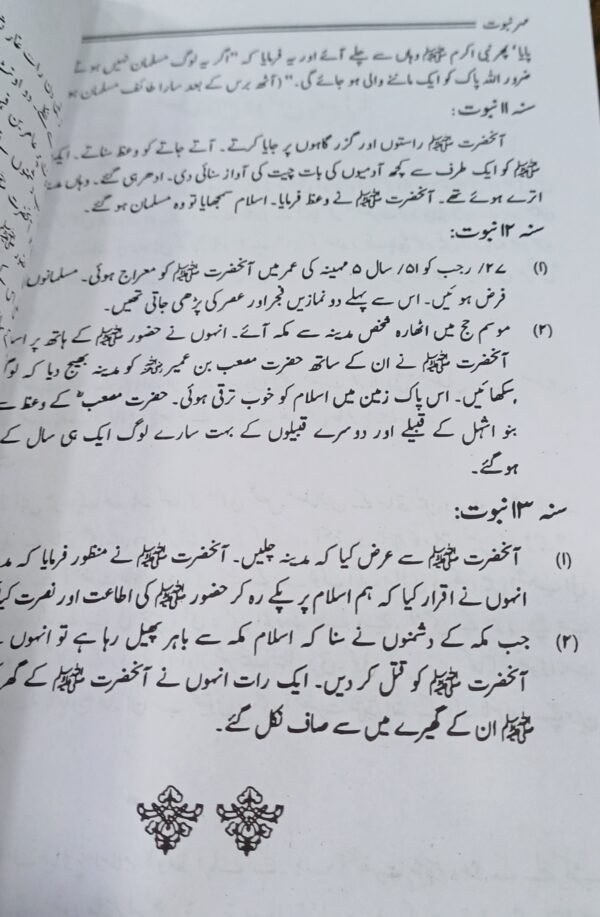 عہد نبوت
پایا‘ پھر نبی اکرم ﷺ وہاں سے چلے آئے اور یہ فرمایا کہ “اگر یہ لوگ مسلمان نہیں ہوتے
ضرور اللہ پاک کو ایک ماننے والی ہو جائے گی۔” (آٹھ برس کے بعد سارا طائف مسلمان ہو
سنہ ۱۱ نبوت:
آنحضرت ﷺ راستوں اور گزر گاہوں پر جایا کرتے۔ آتے جاتے کو وعظ سناتے۔ ایک
ﷺ کو ایک طرف سے کچھ آدمیوں کی بات چیت کی آواز سنائی دی۔ ادھر ہی گئے۔ وہاں
اترے ہوئے تھے۔ آنحضرت ﷺ نے وعظ فرمایا۔ اسلام سمجھایا تو وہ مسلمان ہو گئے۔
سنہ ۱۲ نبوت:
(۱) ۲۷/ رجب کو ۵۱/ سال ۵ مہینہ کی عمر میں آنحضرت ﷺ کو معراج ہوئی۔ مسلمانوں
فرض ہوئیں۔ اس سے پہلے دو نمازیں فجر اور عصر کی پڑھی جاتی تھیں۔
(۲) موسم حج میں اٹھارہ شخص مدینہ سے مکہ آئے۔ انہوں نے حضور ﷺ کے ہاتھ پر
آنحضرت ﷺ نے ان کے ساتھ حضرت مصعب بن عمیر کو مدینہ بھیج دیا کہ
سکھائیں۔ اس پاک زمین میں اسلام کو خوب ترقی ہوئی۔ حضرت مصعبؓ کے وعظ سے
بنو اشہل کے قبیلے اور دوسرے قبیلوں کے بہت سارے لوگ ایک ہی سال کے
ہوگئے۔
سنہ ۱۳ نبوت:
(۱) آنحضرت ﷺ سے عرض کیا کہ مدینہ چلیں۔ آنحضرت ﷺ نے منظور فرمایا کہ
انہوں نے اقرار کیا کہ ہم اسلام پر پکے رہ کر حضور ﷺ کی اطاعت اور نصرت
(۲) جب مکہ کے دشمنوں نے سنا کہ اسلام مکہ سے باہر پھیل رہا ہے تو انہوں
آنحضرت ﷺ کو قتل کر دیں۔ ایک رات انہوں نے آنحضرت ﷺ کے گھر
ﷺ ان کے گھیرے میں سے صاف نکل گئے۔